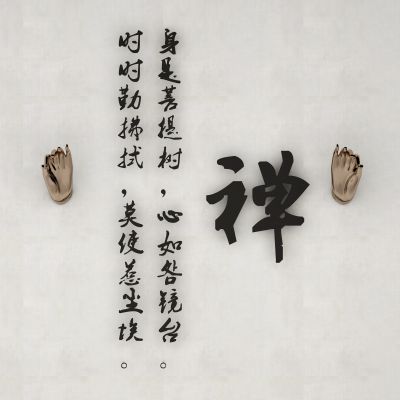 禅
身是菩提树，心如咎镜台。
时时勤拂拭，莫使惹尘埃。